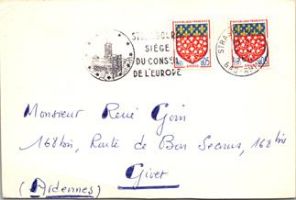 STRASBOURG
SIÈGE
DU CONSEIL
DE L'EUROPE
Monsieur René Goin
168 bis, Route de Bon Secours, 168 bis
Givet
(Ardennes)